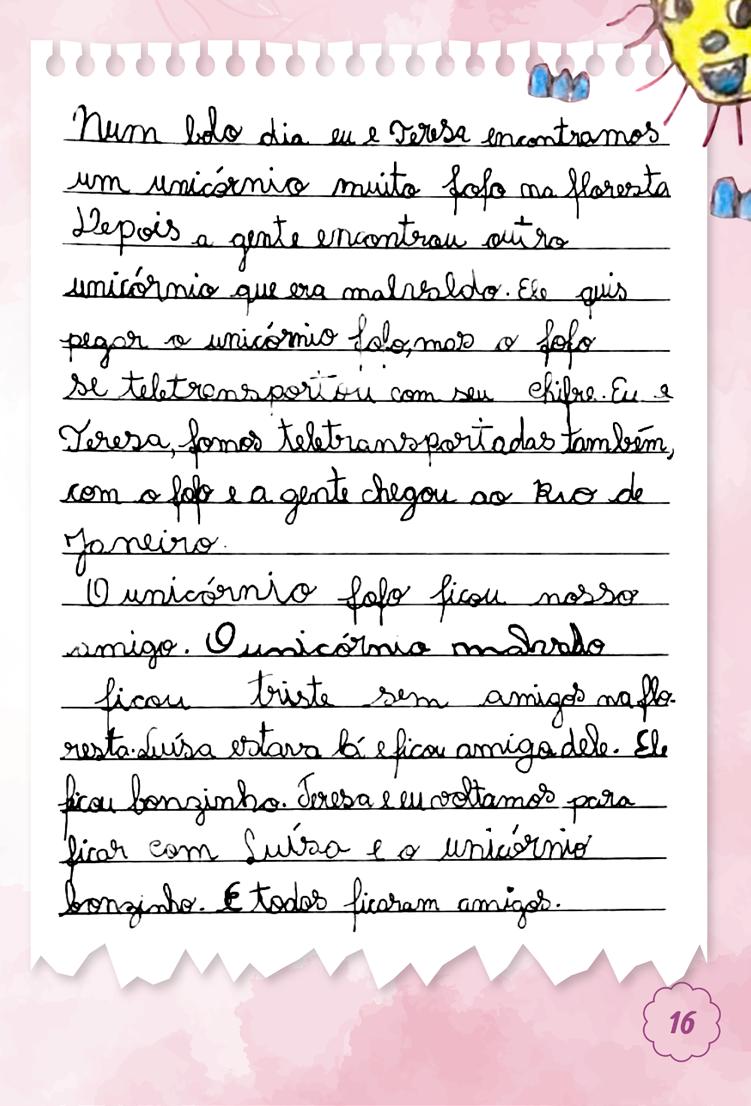 Num belo dia eu e Teresa encontramos
um unicórnio muito fofo na floresta
Depois a gente encontrou outro
unicórnio que era malvaldo. Ele quis
pegar o unicórnio fofo, mas o fofo
se teletransportou com seu chifre. Eu e
Teresa, fomos teletransportadas também,
com o fofo e a gente chegou ao Rio de
Janeiro.
O unicórnio fofo ficou nosso
amigo. O unicórnio malvado
ficou triste sem amigos na flo-
resta. Luísa estava lá e ficou amiga dele. Ele
ficou bonzinho. Teresa e eu voltamos para
ficar com Luísa e o unicórnio
bonzinho. E todos ficaram amigos.
16